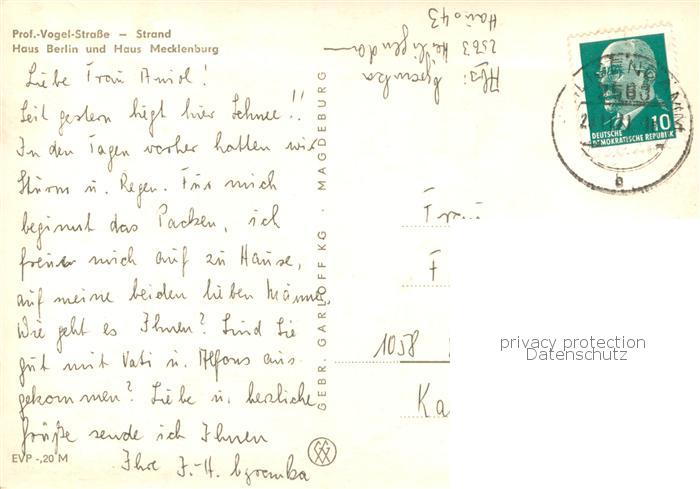 Prof.-Vogel-Straße — Strand
Haus Berlin und Haus Mecklenburg
Liebe Frau
Seit gestern liegt hier Schnee!!
In den Tagen vorher hatten wir
Sturm u. Regen. Für mich
beginnt das Packen, ich
freue mich auf zu Hause,
auf meine beiden lieben Männer,
Wie geht es Ihnen? Sind Sie
gut mit Vati u. Alfons aus-
gekommen? Liebe u. herzliche
Grüße sende ich Ihnen
Ihre J.-H.
EVP -,20 M
GEBR. GARLOFF KG · MAGDEBURG
Abs:
2563 Heiligendamm
Haus 43
10
DEUTSCHE
DEMOKRATISCHE REPUBLIK
b
Frau
F
1058
Ka
privacy protection
Datenschutz